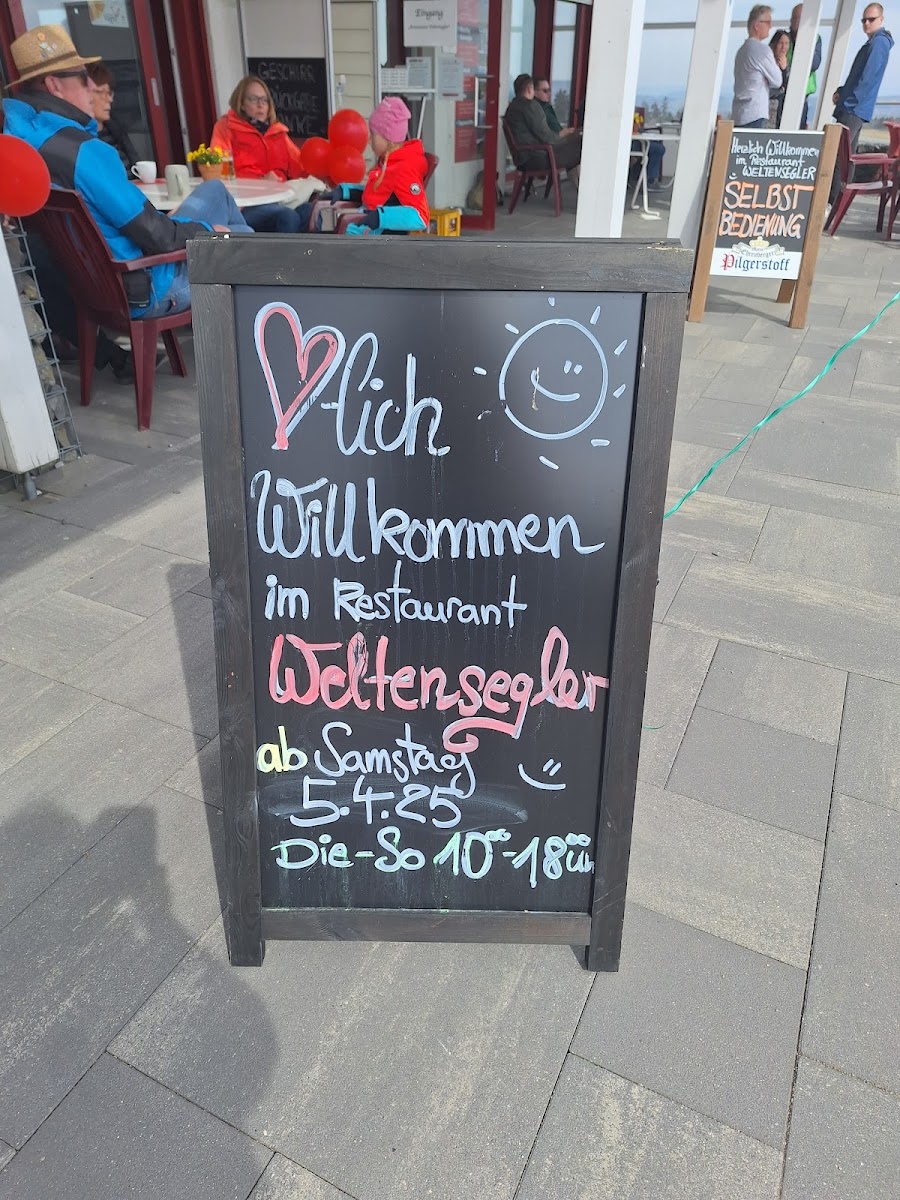 Eingang
GESCHIRR
RÜCKGABE
Herzlich Willkommen
im Restaurant
WELTENSEGLER
SELBST
BEDIENUNG
Pilgerstoff
♡-lich
Willkommen
im Restaurant
Weltensegler
ab Samstag
5.4.25
Die-So 10⁰⁰-18⁰⁰ Uhr